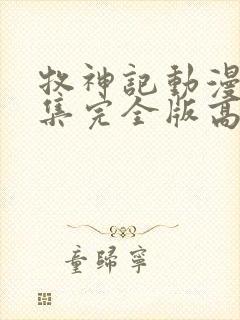 牧神記動漫
集完全版高
童歸寧